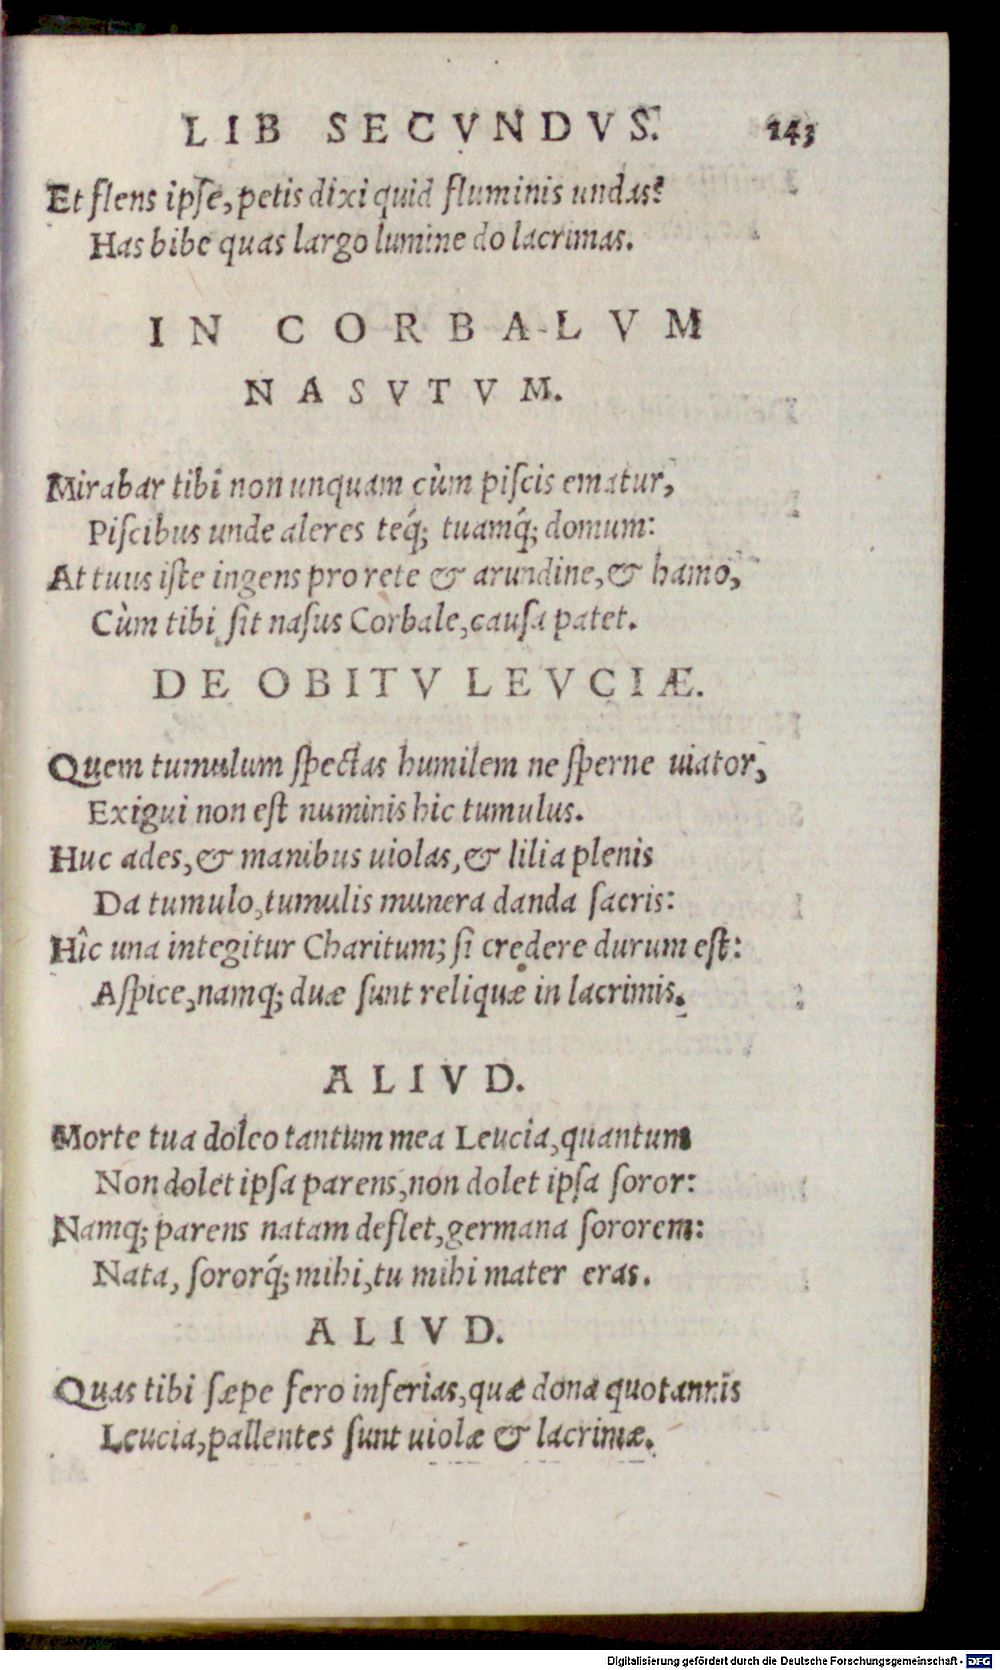 LIB SECVNDVS. 143
Et flens ipſe, petis dixi quid fluminis undas?
Has bibe quas largo lumine do lacrimas.
IN CORBALVM
NASVTVM.
Mirabar tibi non unquam cùm piſcis ematur,
Piſcibus unde aleres teq́; tuamq́; domum:
At tuus iſte ingens pro rete & arundine, & hamo,
Cùm tibi ſit naſus Corbale, cauſa patet.
DE OBITV LEVCIÆ.
Quem tumulum ſpectas humilem ne ſperne uiator,
Exigui non eſt numinis hic tumulus.
Huc ades, & manibus uiolas, & lilia plenis
Da tumulo, tumulis munera danda ſacris:
Hîc una integitur Charitum; ſi credere durum eſt:
Aſpice, namq; duæ ſunt reliquæ in lacrimis.
ALIVD.
Morte tua doleo tantum mea Leucia, quantum
Non dolet ipſa parens, non dolet ipſa ſoror:
Namq; parens natam deflet, germana ſororem:
Nata, ſororq́; mihi, tu mihi mater eras.
ALIVD.
Quas tibi ſæpe fero inferias, quæ dona quotannis
Leucia, pallentes ſunt uiolæ & lacrimæ.
Digitalisierung gefördert durch die Deutsche Forschungsgemeinschaft - DFG